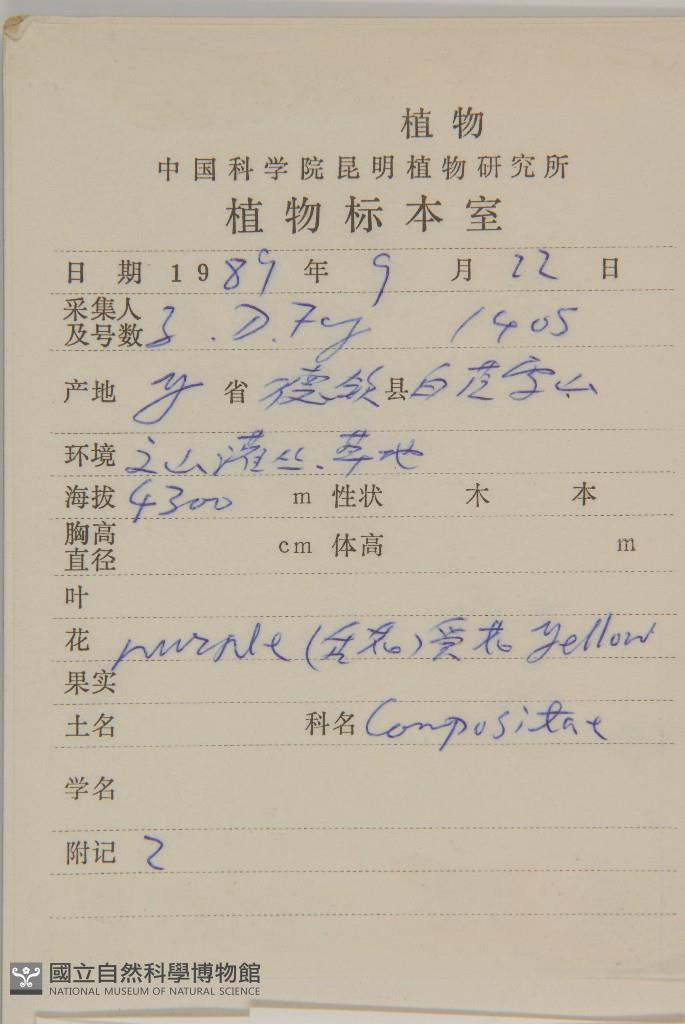 植物
中国科学院昆明植物研究所
植物标本室
日 期 1989 年 9 月 22 日
采集人
及号数 . D. Fey 1405
产地 y 省 德钦 县 白茫雪山
环境 灌丛、草地
海拔 4300 m 性状 木 本
胸高
直径 cm 体高 m
叶
花 purple (舌花) 管花 yellow
果实
土名 科名 Compositae
学名
附记 2
國立自然科學博物館
NATIONAL MUSEUM OF NATURAL SCIENCE